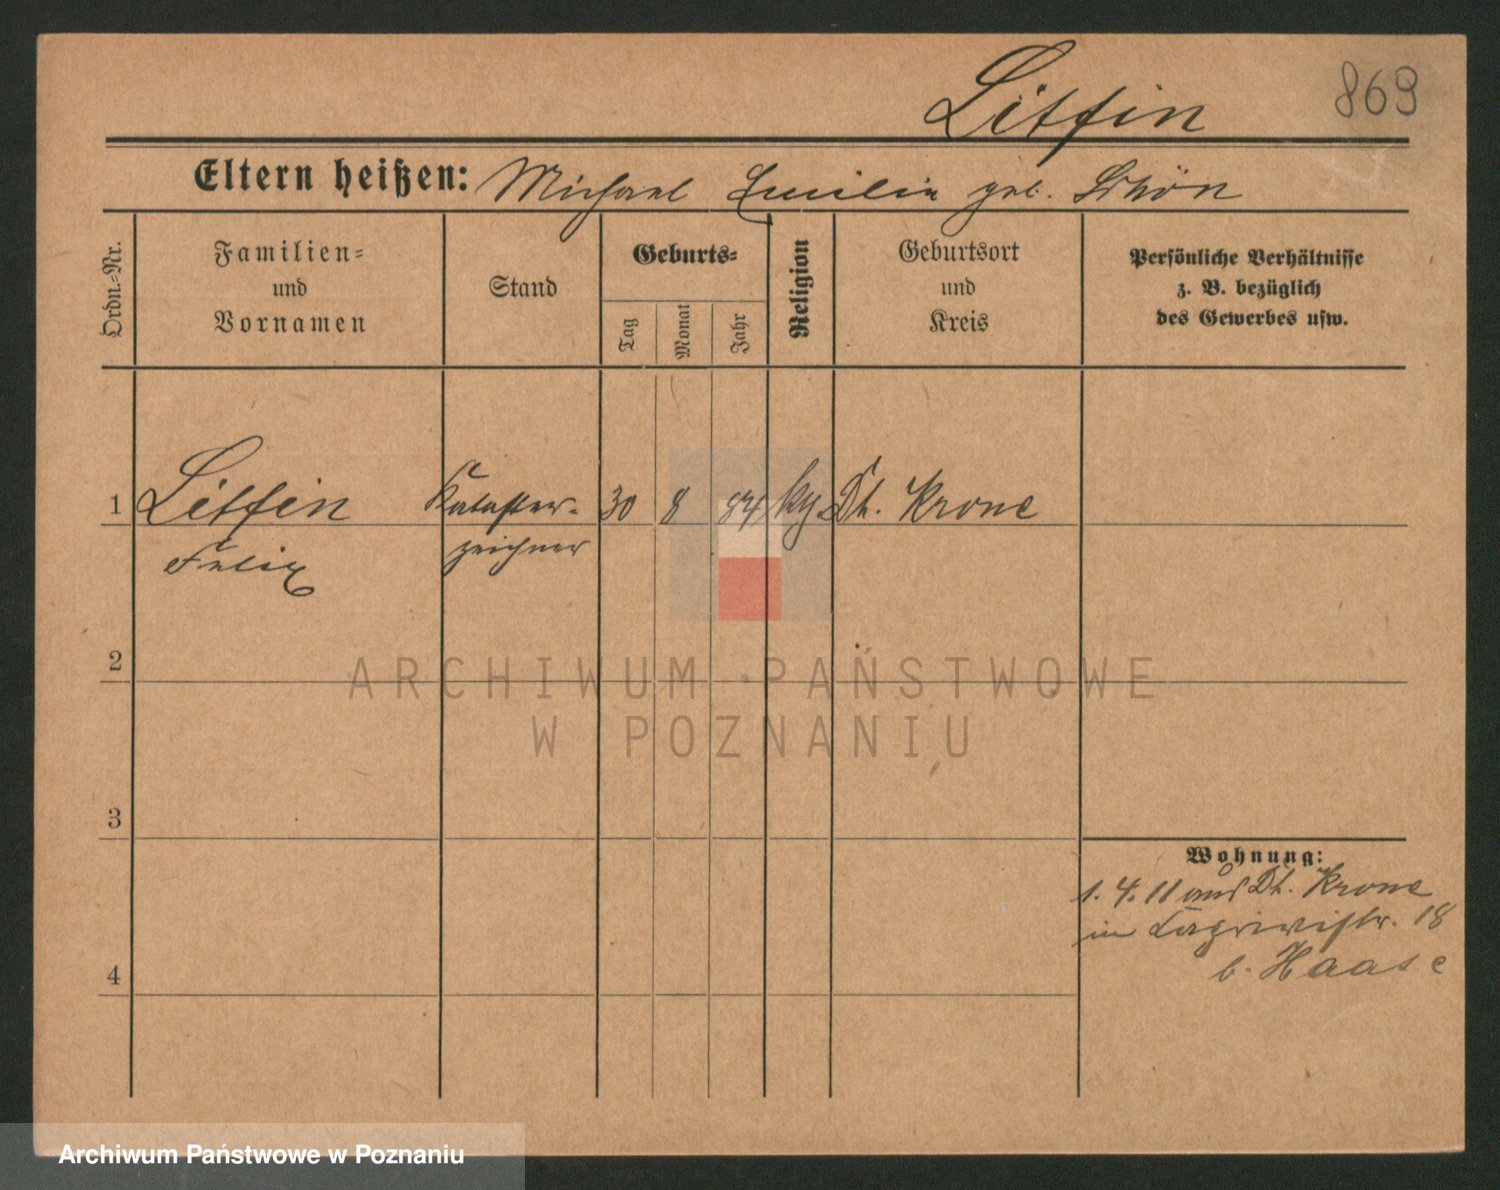 Litfin
869
Eltern heißen: Michael Emilie geb. Schön
Ordn.-Nr.
Familien-
und
Vornamen
Stand
Geburts-
Tag
Monat
Jahr
Religion
Geburtsort
und
Kreis
Persönliche Verhältnisse
z. B. bezüglich
des Gewerbes usw.
1 Litfin Kataster- 30 8 84 Dt. Krone
Felix zeichner
2
ARCHIWUM PAŃSTWOWE
W POZNANIU
3
Wohnung:
1. 4. 11 aus Dt. Krone
in 18
b. Haase
4
Archiwum Państwowe w Poznaniu